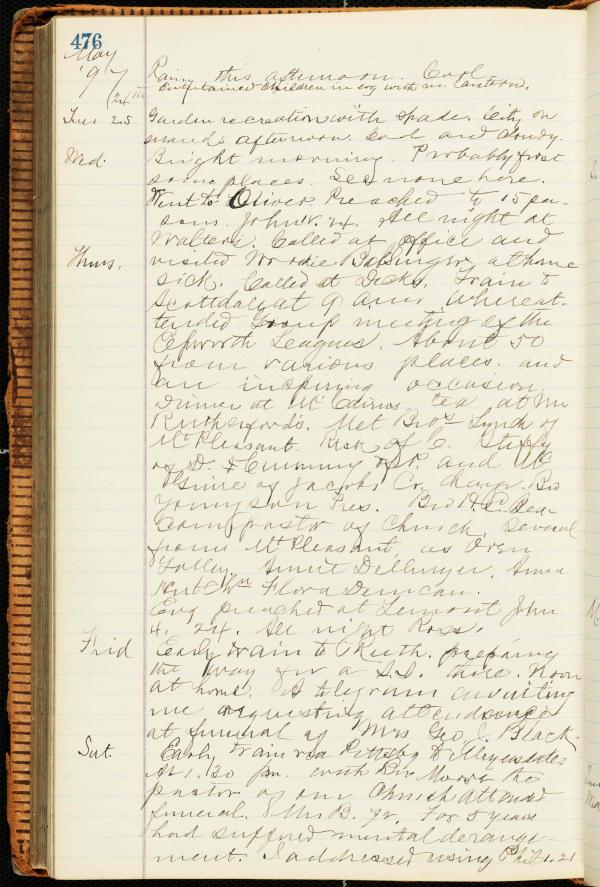 476
May
'97 Rainy this afternoon. Cool.
(24th Entertained children in evg with m. lantern.
Tues 25 Garden recreation with spade. City on
errands afternoon. Cool and cloudy.
Wed. Bright morning. Probably frost
some places. See none here.
Went to Oliver. Preached to 15 per-
sons. John 4. 24. All night at
Walters. Called at office and
Thurs. visited at home
sick. Called at Dicks. Train to
Scottdale at 9 a.m. where at-
tended Group meeting of the
Epworth Leagues. About 50
from various places. and
an inspiring occasion.
Dinner at tea at Mr
Rutherford's. Met Bros Lynch of
Mt Pleasant. of C. Steffy
of D. & Cummings of P. and Mc
Guire of Jacobs Cr. charge. Bro
Pres. Bro
pastor of Church, Several
from Mt Pleasant, as Oren
Annie Dellinger, Anna
Flora Duncan.
Evg preached at Lemont John
4. 24. All night Ross.
Frid Early train to Ruth. preparing
the way for a S.S. there. Noon
at home. A telegram awaiting
me requesting attendance
at funeral of Mrs Geo. J. Black.
Sat. Early train via Pittsbg to Meyersdale.
At 1.30 p.m. with Bro Morse the
pastor of our Church attended
funeral. Mrs B. For 5 years
had suffered mental derange-
ment. I addressed using Phil 1. 21